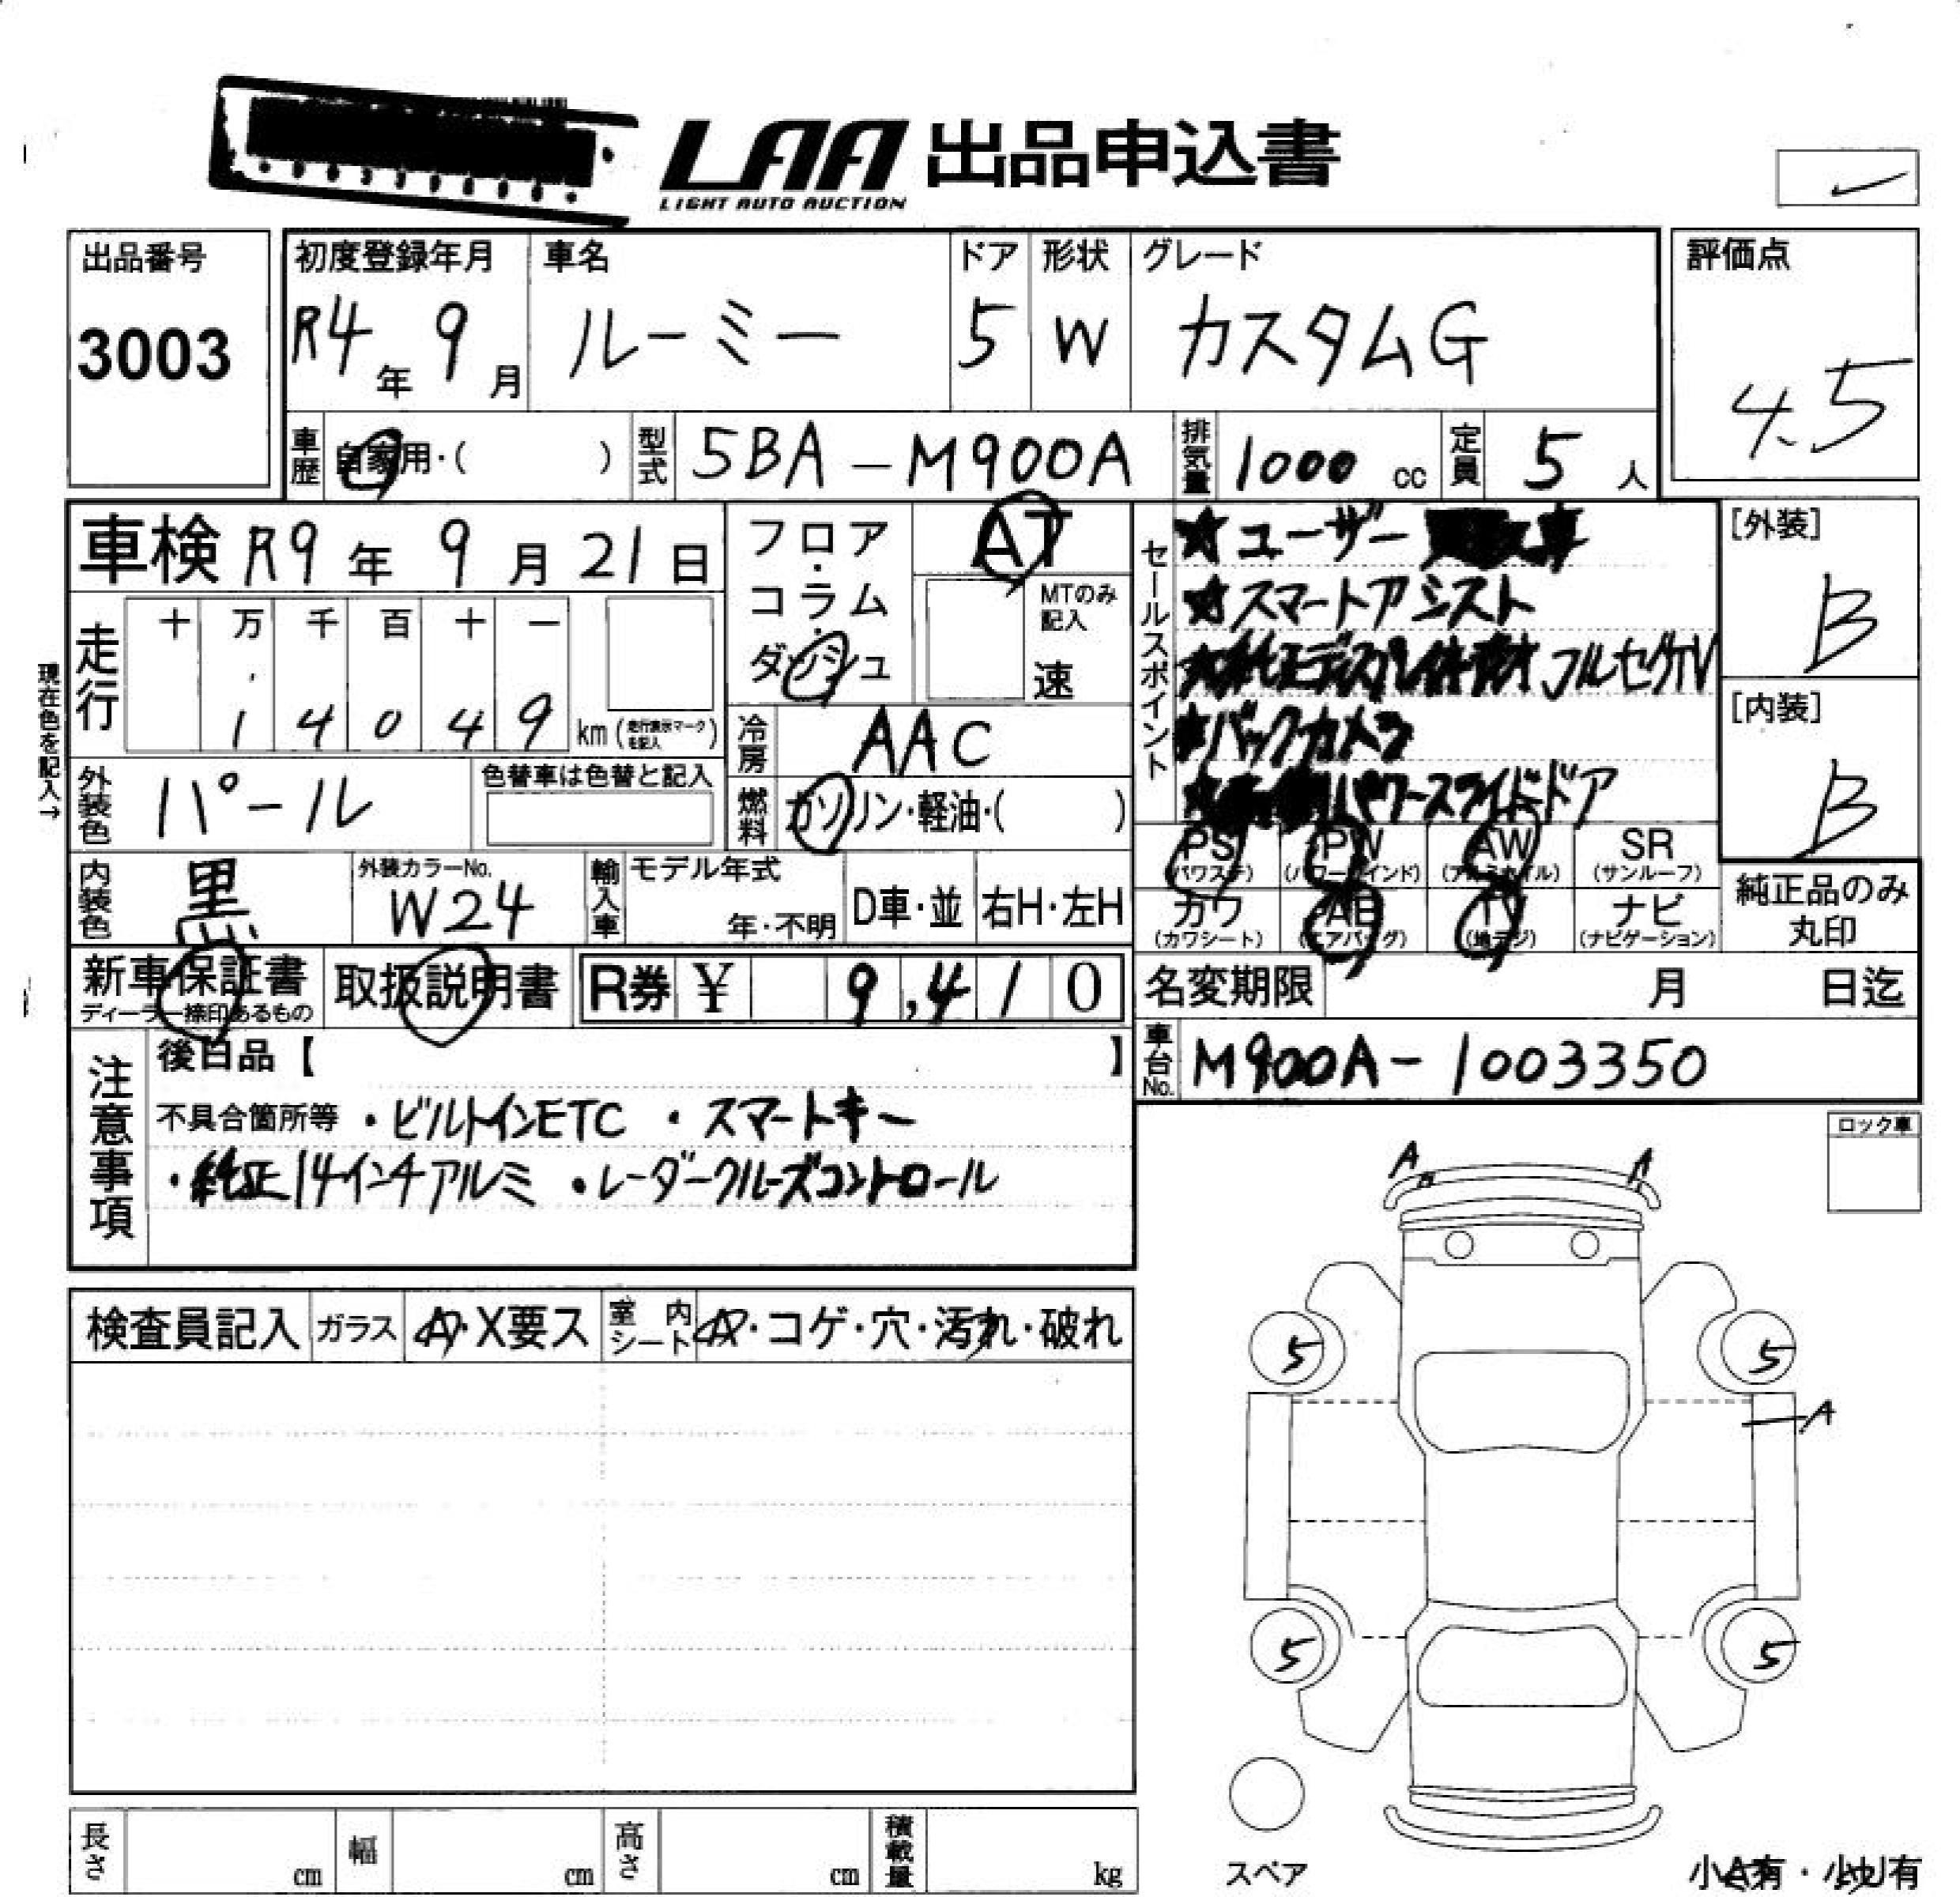 LAA 出品申込書
LIGHT AUTO AUCTION
出品番号
3003
初度登録年月
R4年 9月
車名
ルーミー
ドア
5
形状
W
グレード
カスタムG
評価点
4.5
車歴 自家用・( )
型式 5BA-M900A
排気量 1000 cc
定員 5 人
車検 R9年 9月 21日
走行 十 万 千 百 十 一
1 4 0 4 9 km (走行表示マークを記入)
現在色を記入→
外装色 パール
色替車は色替と記入
内装色 黒
外装カラーNo.
W24
輸入車 モデル年式
年・不明 D車・並 右H・左H
フロア・コラム・ダッシュ
AT
MTのみ記入
速
冷房 AAC
燃料 ガソリン・軽油・( )
セールスポイント
★ユーザー 車
★スマートアシスト
フルセグTV
★バックカメラ
パワースライドドア
[外装]
B
[内装]
B
PS (パワステ) PW (パワーウインド) AW (アルミホイル) SR (サンルーフ)
カワ (カワシート) AB (エアバッグ) TV (地デジ) ナビ (ナビゲーション)
純正品のみ丸印
新車保証書
ディーラー捺印あるもの
取扱説明書
R券 ¥ 9,410
名変期限 月 日迄
車台No. M900A-1003350
注意事項
後日品【 】
不具合箇所等 ・ビルトインETC ・スマートキー
・純正14インチアルミ ・レーダークルーズコントロール
ロック車
検査員記入 ガラス A・X要ス 室内シート A・コゲ・穴・汚れ・破れ
A A
5 5
A
5 5
スペア
小A有・小U有
長さ cm 幅 cm 高さ cm 積載量 kg